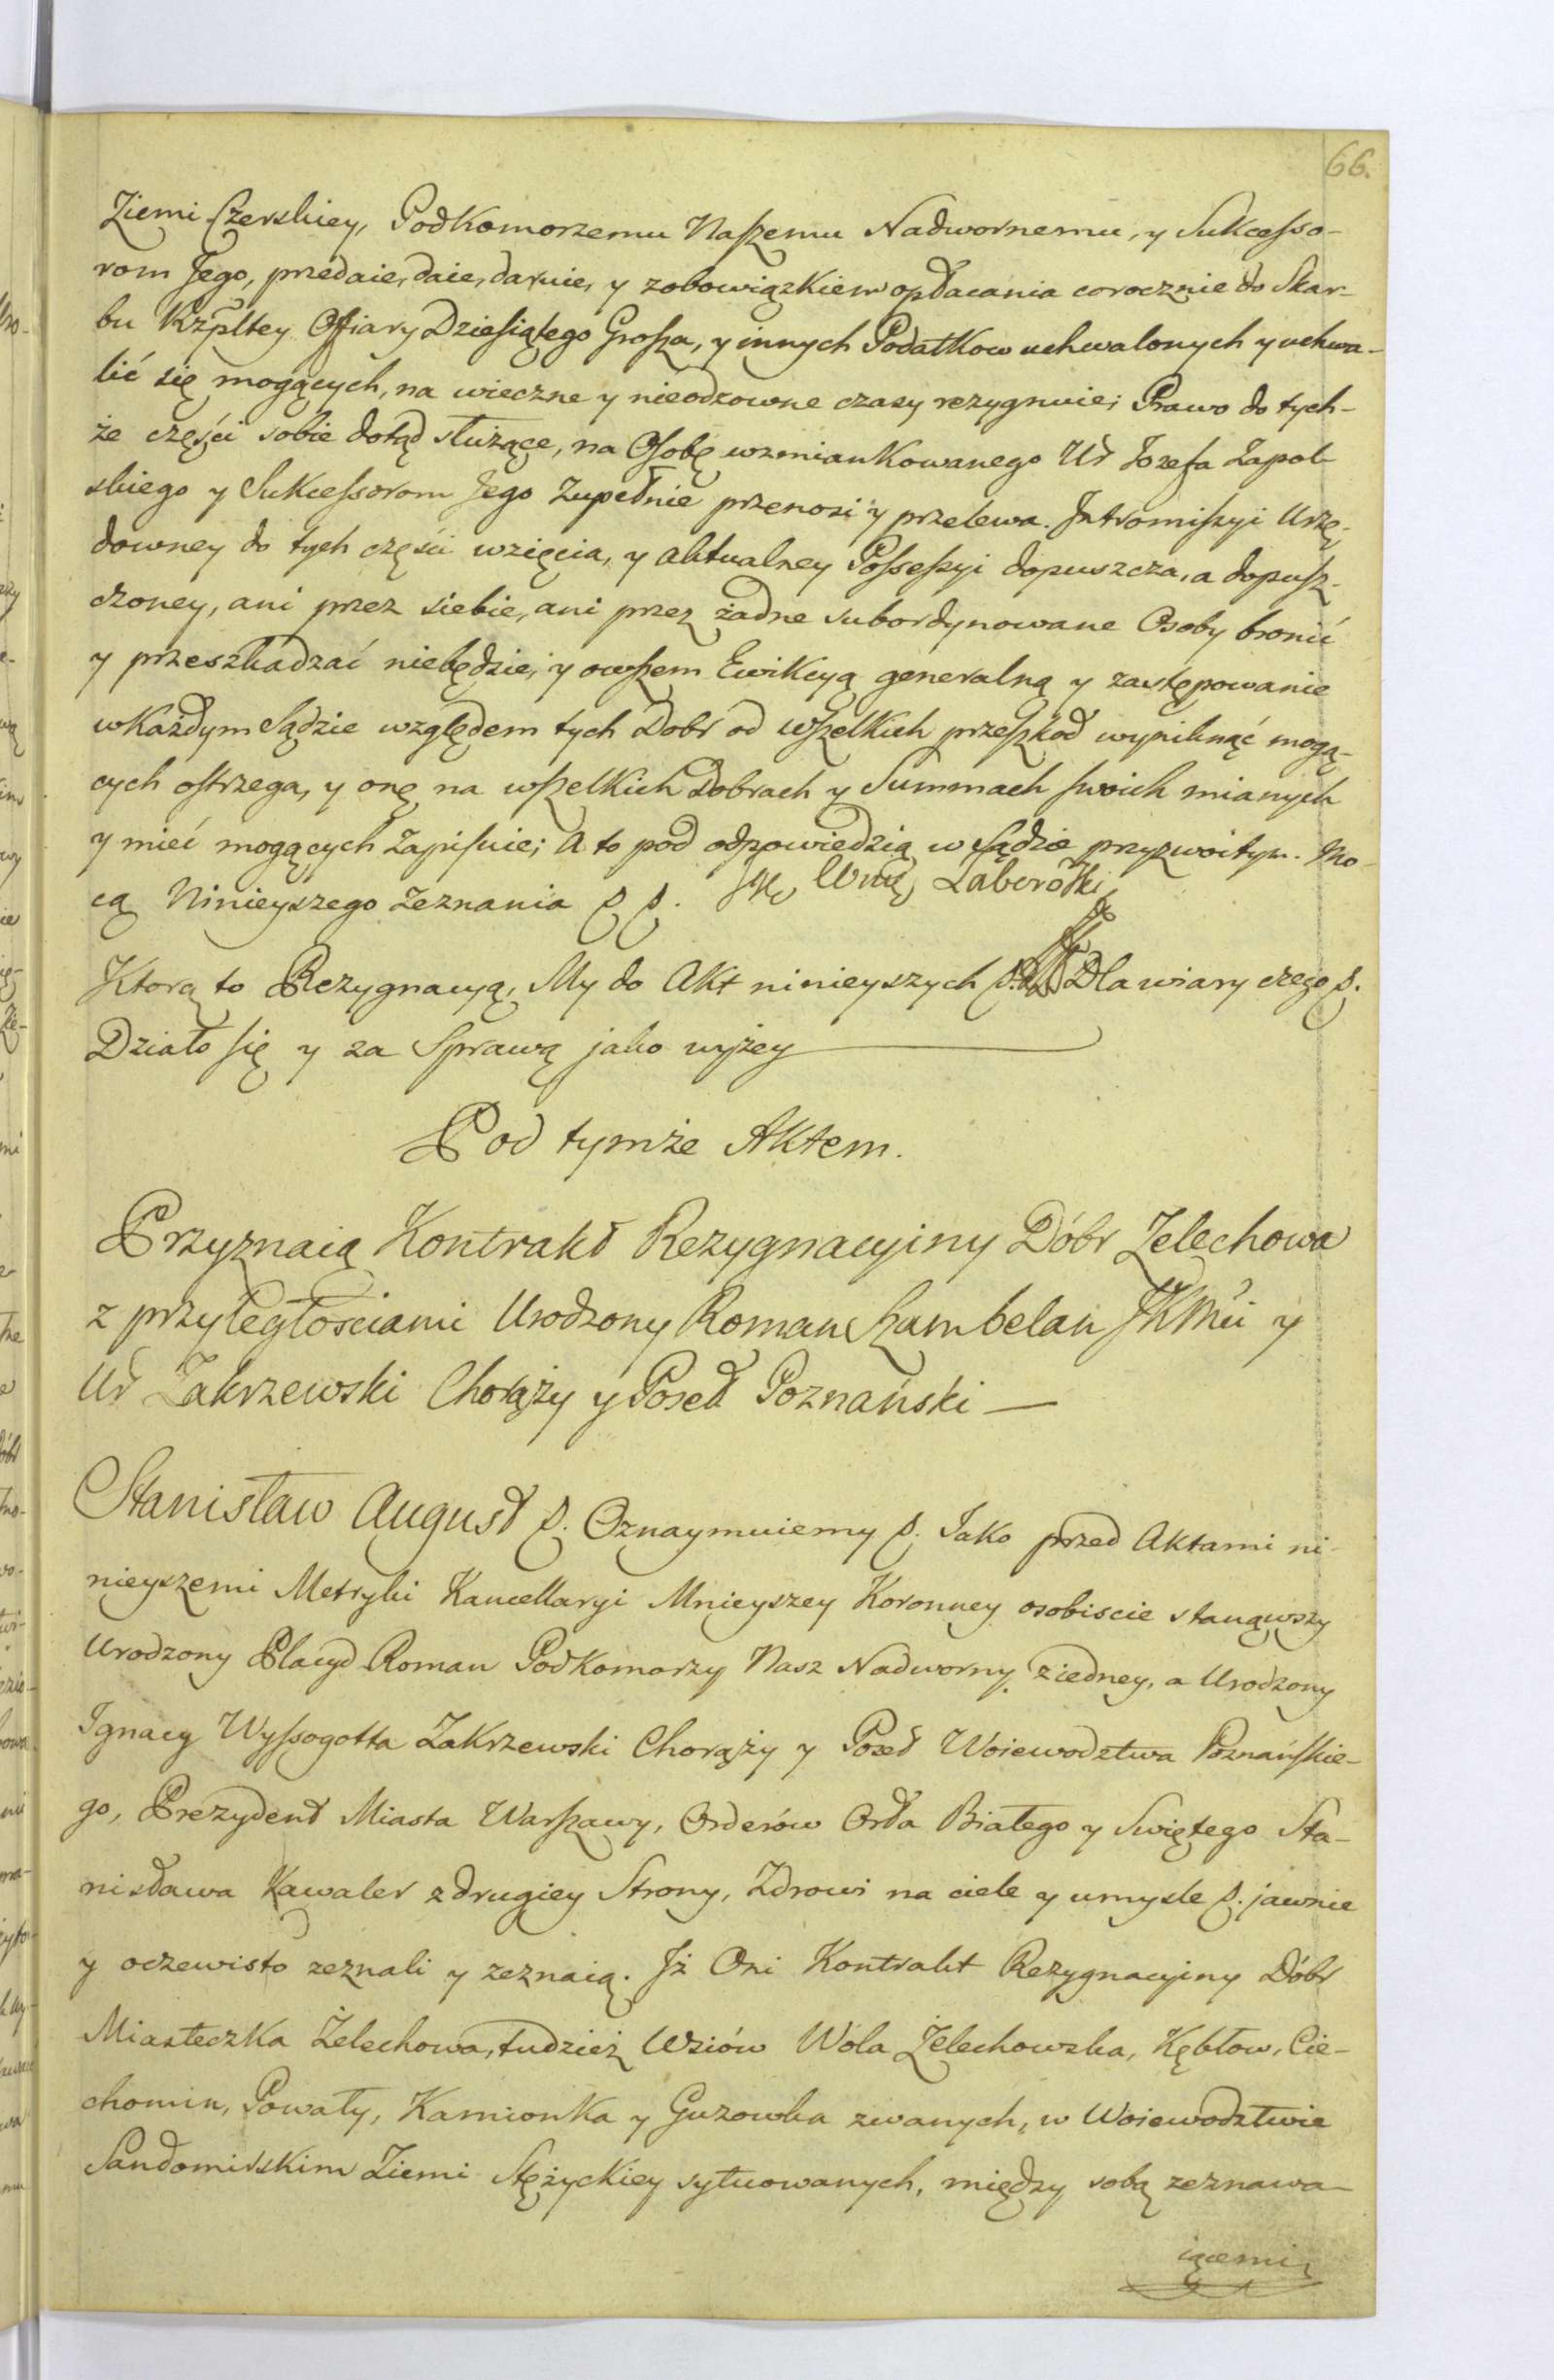 66.
Ziemi Czerskiey, Podkomorzemu Naszemu Nadwornemu, y Sukcesso-
rom Jego, przedaie, daie, daruie, y zobowiązkiem opłacania corocznie do Skar-
bu Rzpltey Offiary Dziesiątego Grosza, y innych Podatkow uchwalonych y uchwa-
lić się mogących, na wieczne y nieodzowne czasy rezygnuie; Prawo do tych-
że części sobie dotąd służące, na Osobę wzmiankowanego Ur Jozefa Zapol-
skiego y Sukcessorom Jego zupełnie przenosi y przelewa. Jntromissyi Urzę-
downey do tych części wzięcia, y aktualney Possessyi dopuszcza, a dopusz-
czoney, ani przez siebie, ani przez żadne subordynowane Osoby bronić
y przeszkadzać niebędzie; y owszem Ewikcyą generalną y zastępowanie
w Każdym Sądzie względem tych Dobr od wszelkich przeszkod wyniknąć mogą-
cych ostrzega, y onę na wszelkich Dobrach y Summach swoich mianych
y mieć mogących zapisuie; A to pod odpowiedzią w Sądzie przyzwoitym. Mo-
cą Ninieyszego Zeznania p p.
Ktorą to Rezygnacyą, My do Akt ninieyszych p. Dla wiary czego p.
Działo się y za Sprawą jako wyżey
Pod tymże Aktem.
Przyznaią Kontrakt Rezygnacyiny Dóbr Żelechowa
z przyległościami Urodzony Roman Szambelan JKMci y
Ur Zakrzewski Chorąży y Poseł Poznański —
Stanisław August p. Oznaymuiemy p. Jako przed Aktami ni-
nieyszemi Metryki Kancellaryi Mnieyszey Koronney osobiscie stanąwszy
Urodzony Placyd Roman Podkomorzy Nasz Nadworny z iedney, a Urodzony
Ignacy Wyssogotta Zakrzewski Chorąży y Poseł Woiewodztwa Poznańskie-
go, Prezydent Miasta Warszawy, Orderów Orła Białego y Swiętego Sta-
nisława Kawaler z drugiey Strony, Zdrowi na ciele y umysle p. jawnie
y oczewisto zeznali y zeznaią. Jż Oni Kontrakt Rezygnacyiny Dóbr
Miasteczka Żelechowa, tudzież Wsiów Wola Żelechowska, Kębłow, Cie-
chomin, Powały, Kamionka y Guzowka zwanych, w Woiewodztwie
Sandomirskim Ziemi Stężyckiey sytuowanych, między sobą zeznawa-
iącemi